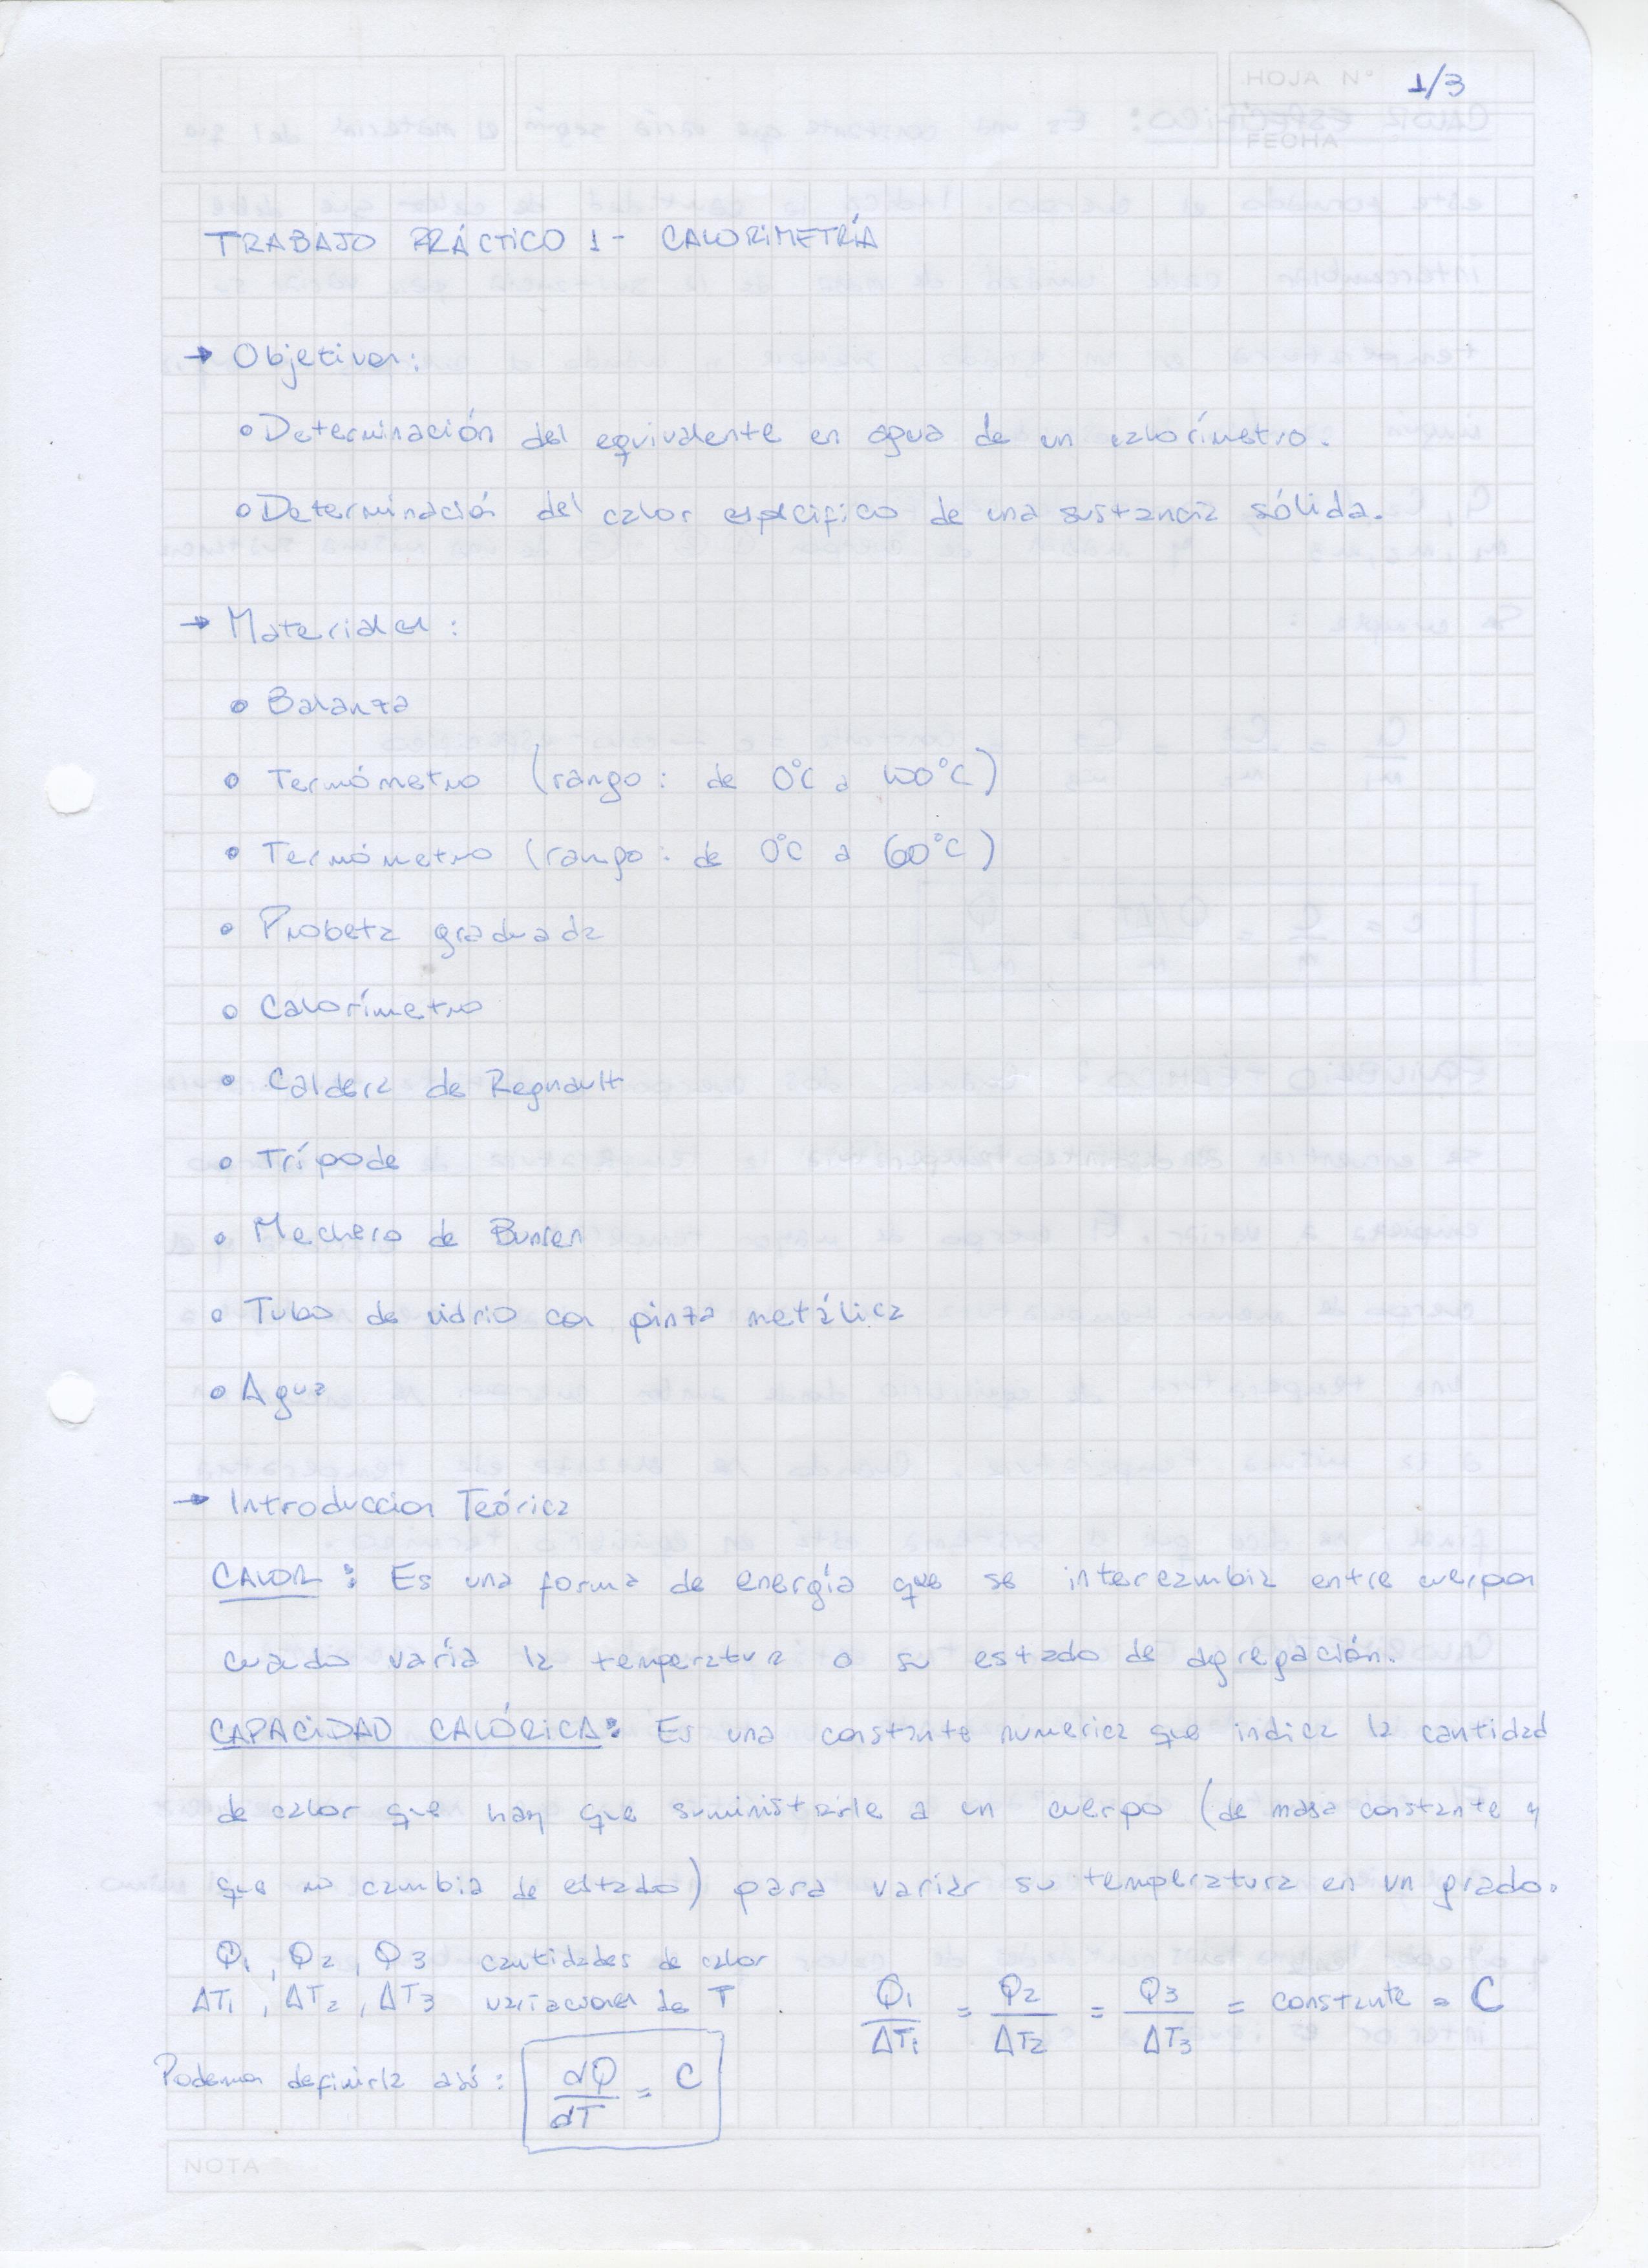 HOJA Nº 1/3
FECHA
TRABAJO PRÁCTICO 1 - CALORIMETRÍA
→ Objetivos:
• Determinación del equivalente en agua de un calorímetro.
• Determinación del calor especifico de una sustancia sólida.
→ Materiales:
• Balanza
• Termómetro (rango: de 0°C a 100°C)
• Termómetro (rango: de 0°C a 60°C)
• Probeta graduada
• Calorímetro
• Caldera de Regnault
• Trípode
• Mechero de Bunsen
• Tubo de vidrio con pinza metálica
• Agua
→ Introduccion Teórica
CALOR: Es una forma de energía que se intercambia entre cuerpos
cuando varía la temperatura o su estado de agregación.
CAPACIDAD CALÓRICA: Es una constante numerica que indica la cantidad
de calor que hay que suministrarle a un cuerpo (de masa constante y
que no cambia de estado) para variar su temperatura en un grado.
Q1, Q2, Q3 cantidades de calor
ΔT1, ΔT2, ΔT3 variaciones de T. Q1/ΔT1 = Q2/ΔT2 = Q3/ΔT3 = constante = C
Podemos definirla así: dQ/dT = C
NOTA